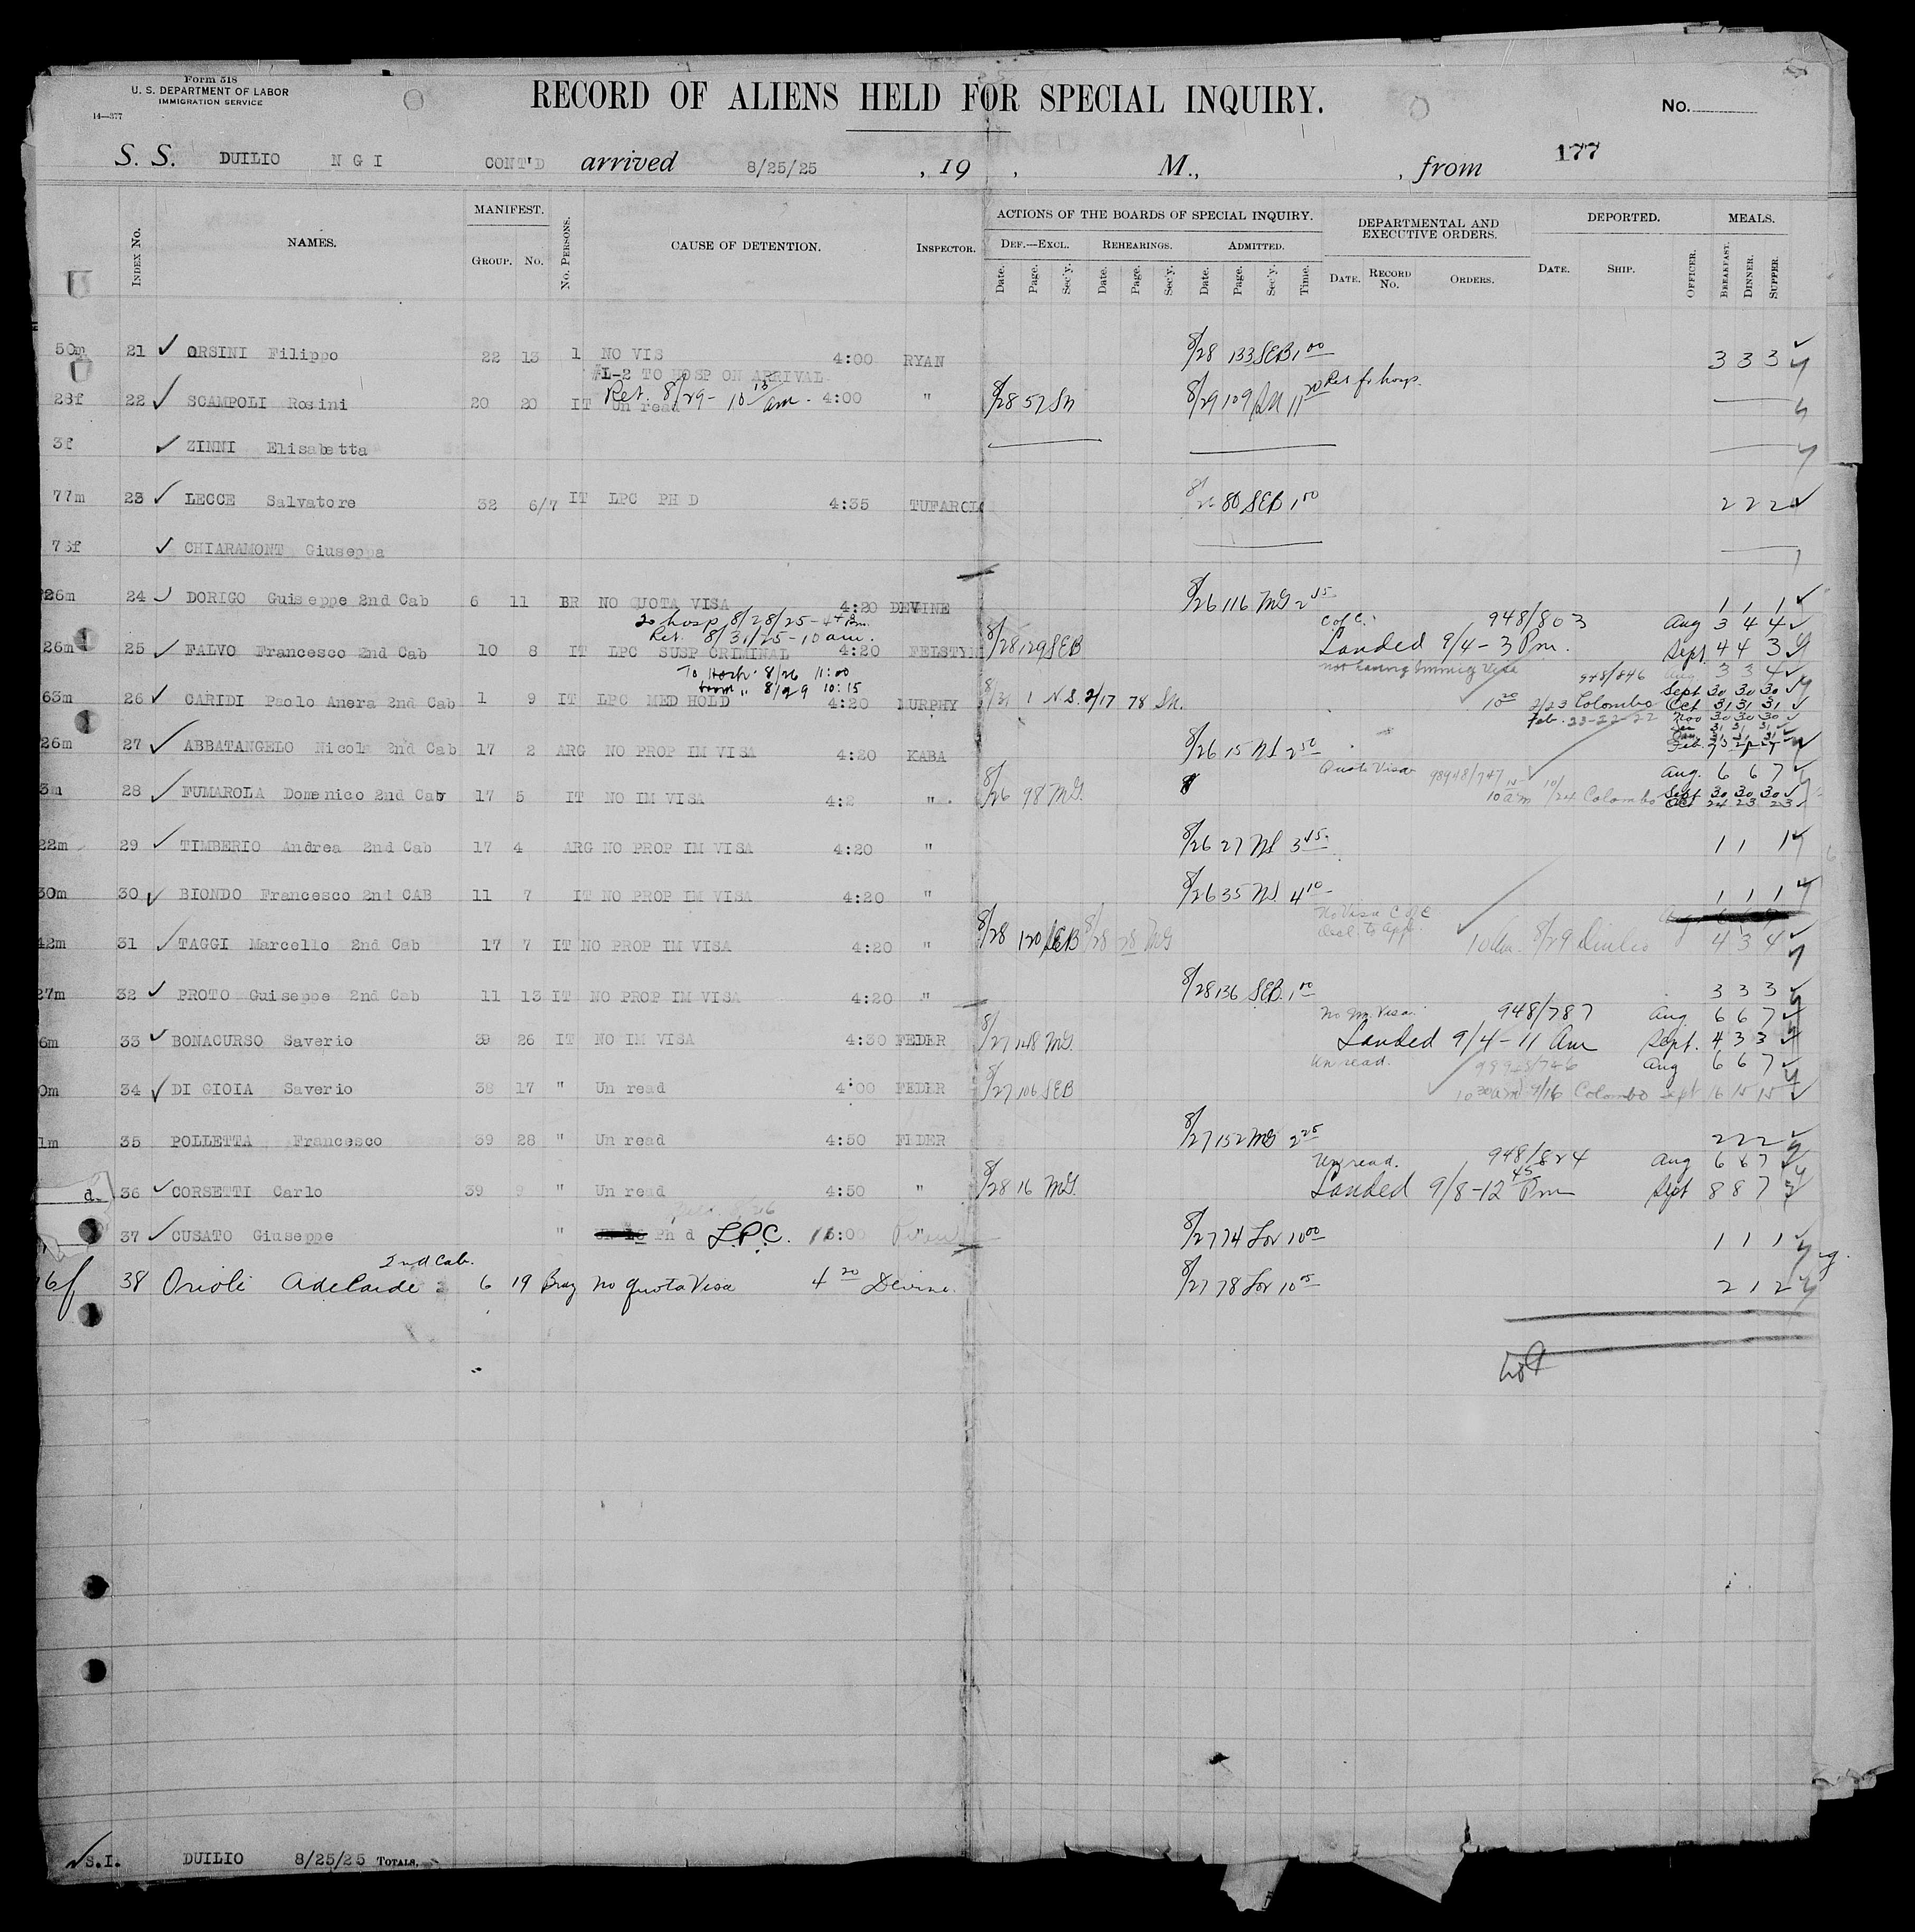 Form 518
U. S. DEPARTMENT OF LABOR
IMMIGRATION SERVICE
14—377
RECORD OF ALIENS HELD FOR SPECIAL INQUIRY.
No.
177
S. S. DUILIO N G I CONT'D arrived 8/25/25 , 19 , M., , from
Index No. NAMES. MANIFEST. Group. No. No. Persons. CAUSE OF DETENTION. Inspector.
ACTIONS OF THE BOARDS OF SPECIAL INQUIRY. DEPARTMENTAL AND EXECUTIVE ORDERS. DEPORTED. MEALS.
Def.—Excl. Rehearings. Admitted.
Date. Page. Sec'y. Date. Page. Sec'y. Date. Page. Sec'y. Time. Date. Record No. Orders. Date. Ship. Officer. Breakfast. Dinner. Supper.
50m 21 ✓ ORSINI Filippo 22 13 1 NO VIS 4:00 RYAN 8/28 133 SEB 1 00 3 3 3
L-2 TO HOSP ON ARRIVAL
Ret. 8/29 - 10 15 am.
28f 22 ✓ SCAMPOLI Rosini 20 20 IT Un read 4:00 " 8/28 57 SN 8/29 109 SN 11 20 Ret fr hosp.
3f ✓ ZINNI Elisabetta
77m 23 ✓ LECCE Salvatore 32 6/7 IT LPC PH D 4:35 TUFAROL 80 SEB 1 00 2 2 2
76f ✓ CHIARAMONT Giuseppa
26m 24 DORIGO Guiseppe 2nd Cab 6 11 BR NO QUOTA VISA 4:20 DEVINE 8/26 116 MG 2 45 1 1 1
To hosp 8/28/25 - 4 Pm.
Ret. 8/31/25 - 10 am.
948/803 Aug 3 4 4
26m 25 ✓ FALVO Francesco 2nd Cab 10 8 IT LPC SUSP CRIMINAL 4:20 FELSTYN 8/28 129 SEB Landed 9/4 - 3 Pm. Sept 4 4 3
To Hosp 8/26 11:00
from " 8/29 10:15
not having Immig Visa 948/846 Aug 3 3 4
63m 26 ✓ CARIDI Paolo Anera 2nd Cab 1 9 IT LPC MED HOLD 4:20 MURPHY 8/31 1 N.S. 2/17 78 SN. 10 20 2/23 Colombo Sept 30 30 30
Oct 31 31 31
Feb. 23-22-22 Nov 30 30 30
26m 27 ✓ ABBATANGELO Nicola 2nd Cab 17 2 ARG NO PROP IM VISA 4:20 KABA 8/26 15 NS 2 50
Quota Visa 98948/747 Aug. 6 6 7
3m 28 ✓ FUMAROLA Domenico 2nd Cab 17 5 IT NO IM VISA 4:2 " 8/26 98 MG. 10 am 10/24 Colombo Sept 30 30 30
Oct 24 23 23
22m 29 ✓ TIMBERIO Andrea 2nd Cab 17 4 ARG NO PROP IM VISA 4:20 " 8/26 27 NS 3 45 1 1 1
30m 30 ✓ BIONDO Francesco 2nd CAB 11 7 IT NO PROP IM VISA 4:20 " 8/26 35 NS 4 10 1 1 1
No Visa
42m 31 ✓ TAGGI Marcello 2nd Cab 17 7 IT NO PROP IM VISA 4:20 " 8/28 120 SEB 8/28 28 MG 10 am. 8/29 Duilio 4 3 4
27m 32 ✓ PROTO Guiseppe 2nd Cab 11 13 IT NO PROP IM VISA 4:20 " 8/28 136 SEB. 1 00 3 3 3
No Im Visa. 948/787 Aug 6 6 7
6m 33 ✓ BONACURSO Saverio 39 26 IT NO IM VISA 4:30 FEDER 8/27 148 MG. Landed 9/4 - 11 Am Sept. 4 3 3
Un read. 98948/746 Aug 6 6 7
0m 34 ✓ DI GIOIA Saverio 38 17 " Un read 4:00 FEDER 8/27 106 SEB 10 30 am 9/16 Colombo Sept 16 15 15
1m 35 POLLETTA Francesco 39 28 " Un read 4:50 FIDER 8/27 152 MG 2 25 2 2 2
Un read. 948/824 Aug 6 6 7
d. 36 ✓ CORSETTI Carlo 39 9 " Un read 4:50 " 8/28 16 MG. Landed 9/8 - 12 45 Pm Sept 8 8 7
37 ✓ CUSATO Giuseppe " Ph d L.P.C. 8/27 74 Lor 10 00 1 1 1
2nd Cab.
16f 38 Orioli Adelaide 6 19 Braz no quota Visa 4 20 Devine. 8/27 78 Lor 10 05 2 1 2
✓ S.I. DUILIO 8/25/25 Totals.